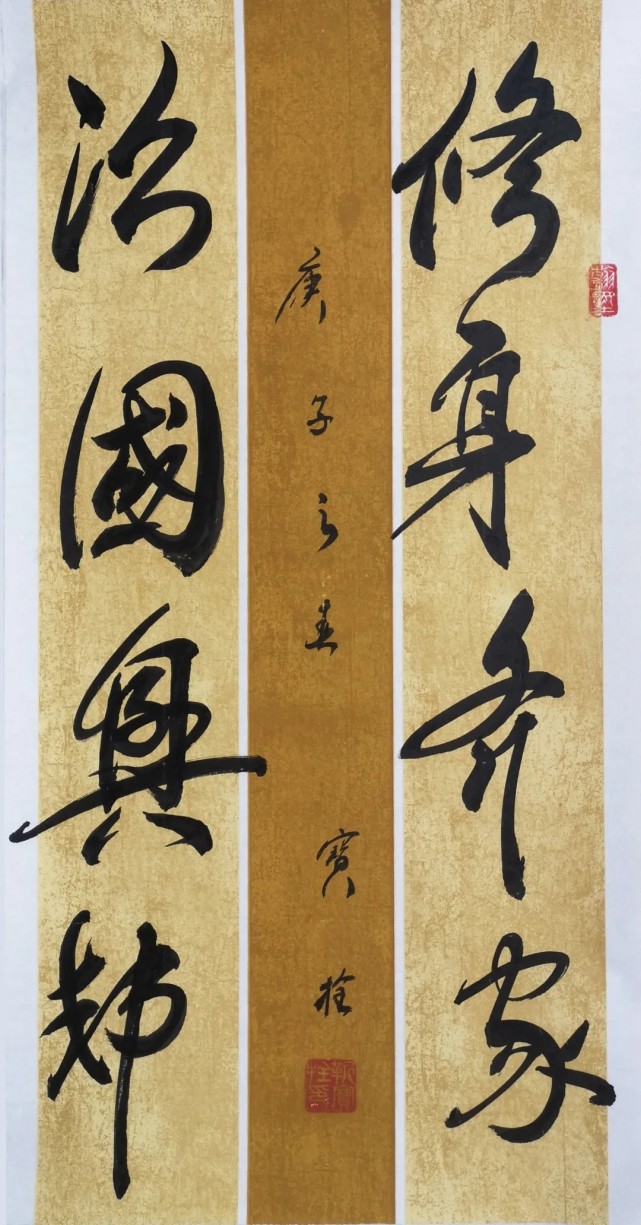 修身齐家
治國興邦
庚子之春 寶栓